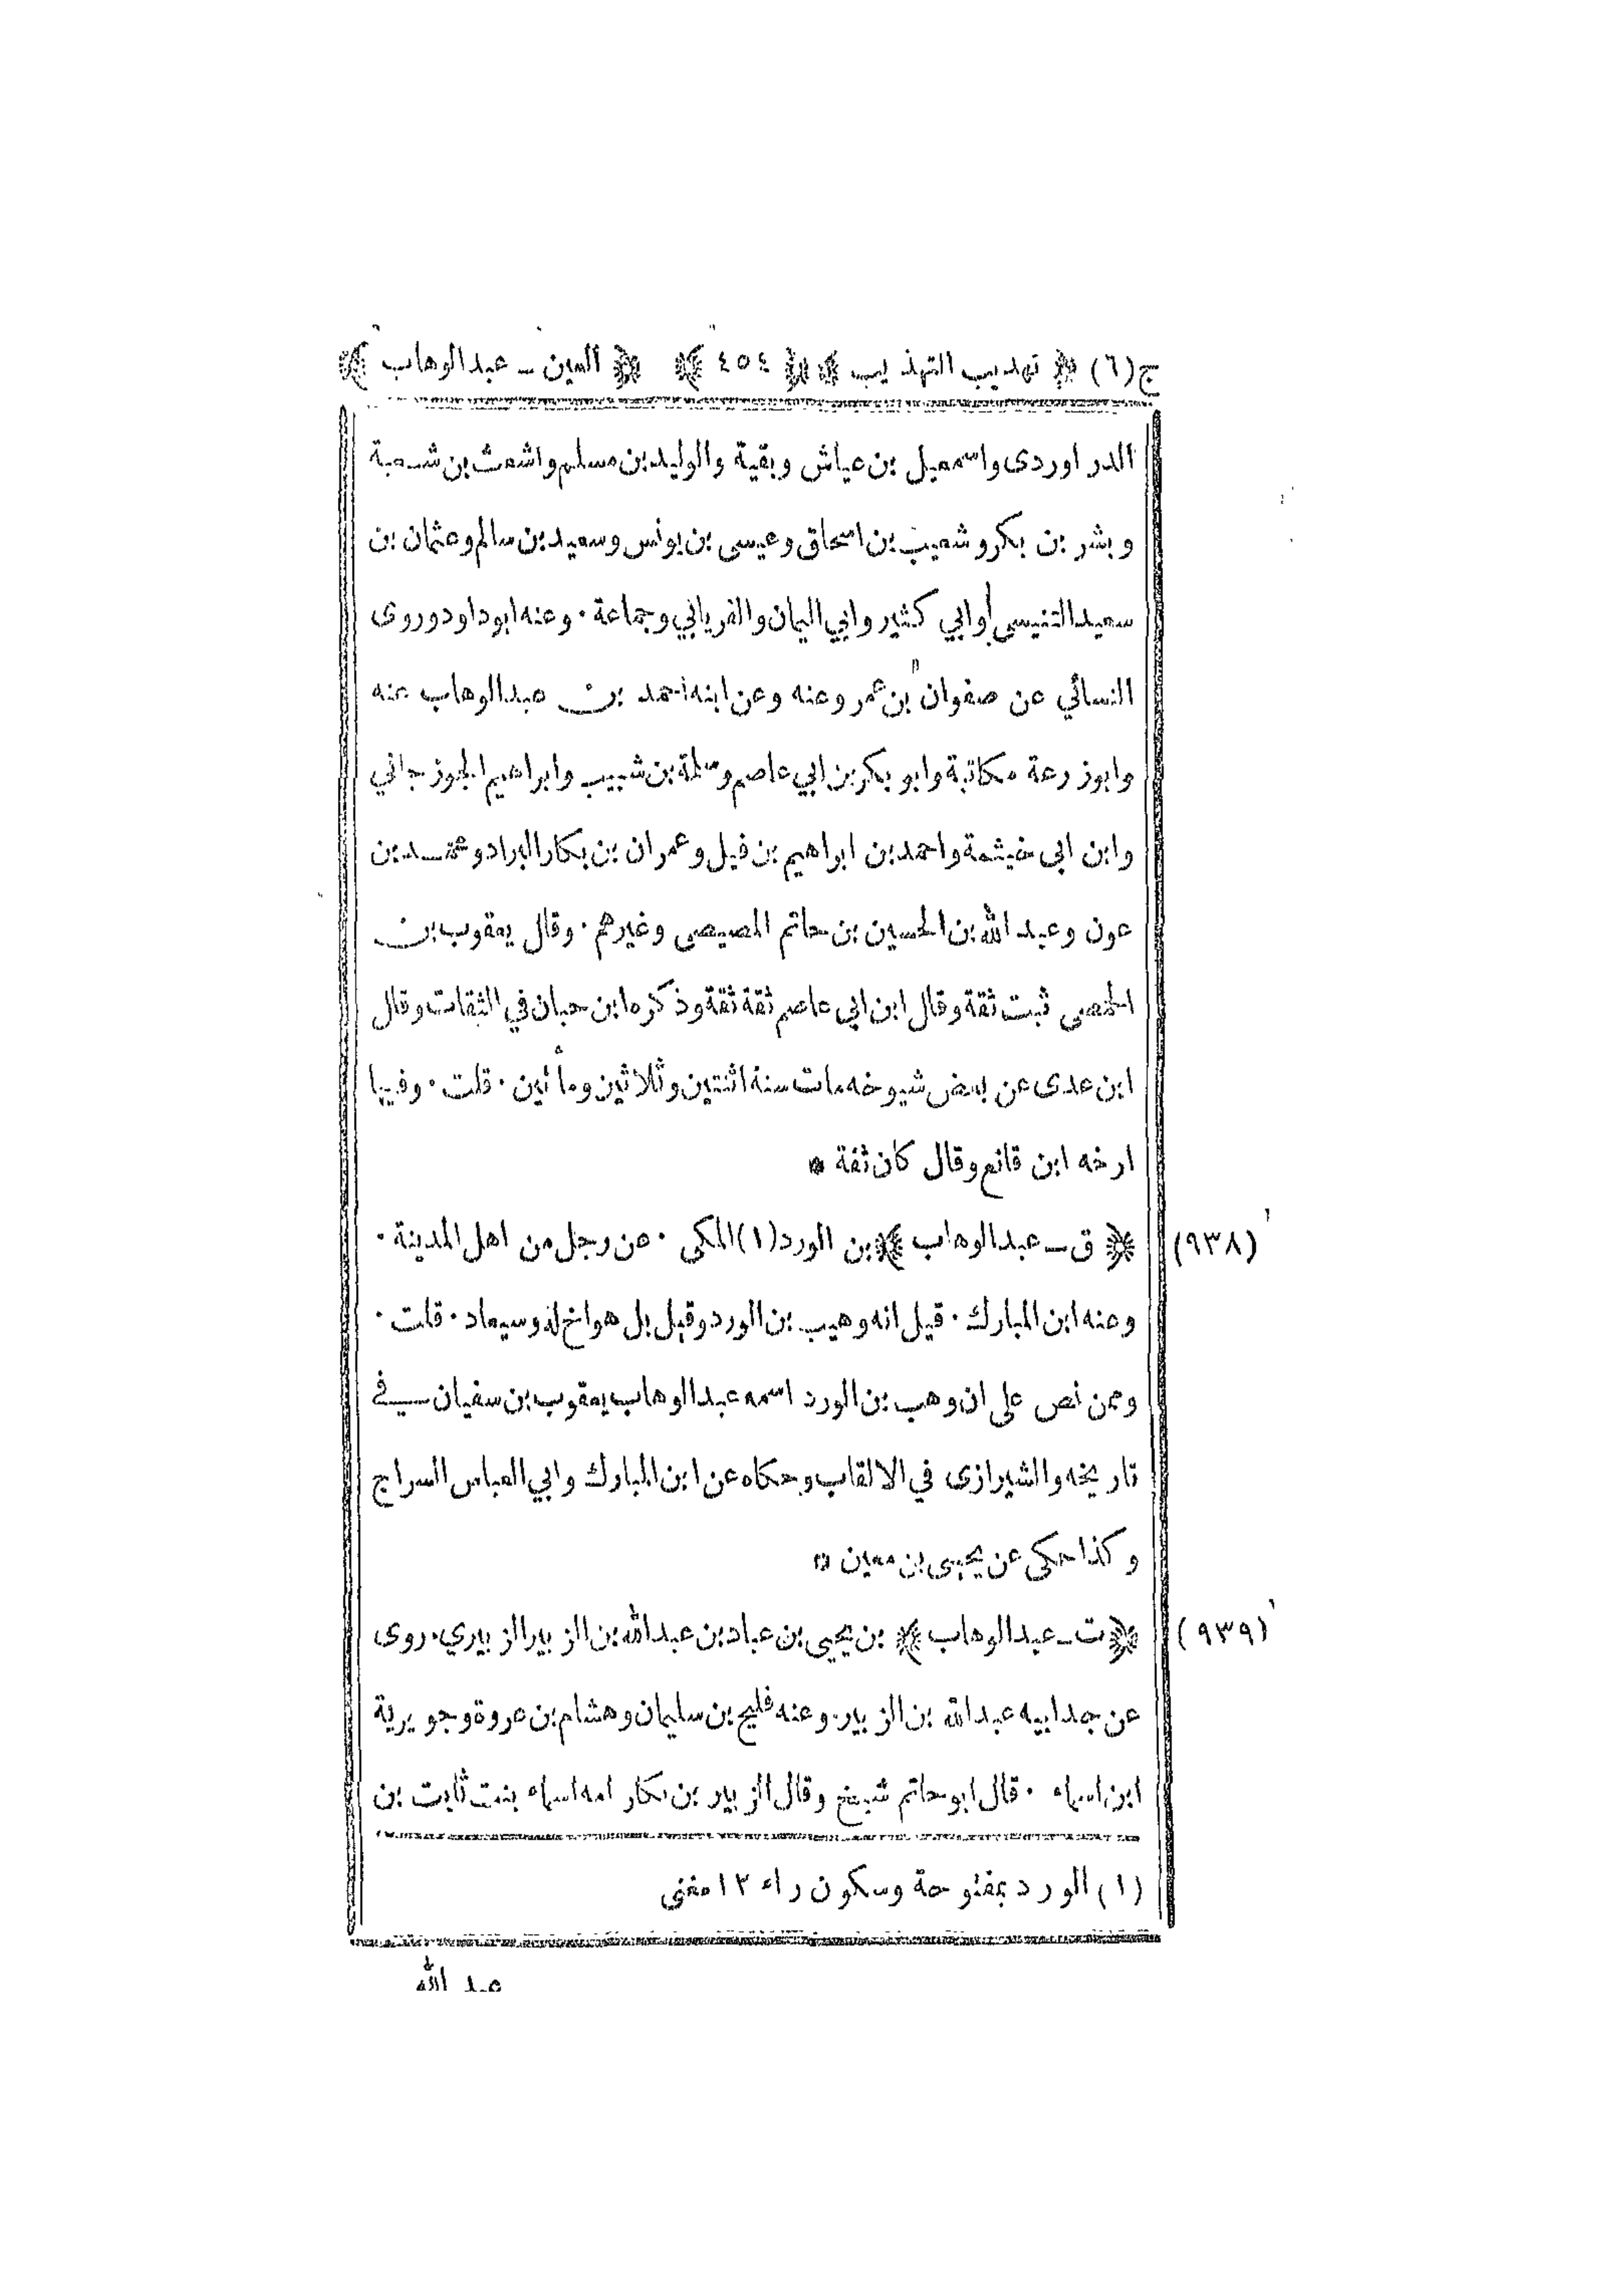 ج(٦) ﴿ تهذيب التهذيب ﴾ ﴿ ٤٥٤ ﴾ ﴿ العين ـ عبد الوهاب ﴾
الدراوردى واسمعيل بن عياش وبقية والوليد بن مسلم واشعث بن شعبة
وبشر بن بكر وشعيب بن اسحاق وعيسى بن يونس وسعيد بن سالم وعثمان بن
سعيد التنيسى وابي كثير وابي اليمان والفريابي وجماعة · وعنه ابو داود وروى
النسائي عن صفوان بن عمر وعنه وعن ابنه احمد بن عبد الوهاب عنه
وابوزرعة مكاتبة وابو بكر بن ابي عاصم وسلمة بن شبيب وابراهيم الجوزجاني
وابن ابى خيثمة واحمد بن ابراهيم بن فيل وعمران بن بكار البراد ومحمد بن
عون وعبد الله بن الحسين بن حاتم المصيصى وغيرهم · وقال يعقوب بن
الحمصى ثبت ثقة وقال ابن ابى عاصم ثقة ثقة وذكره ابن حبان في الثقات وقال
ابن عدى عن بعض شيوخه مات سنة اثنتين وثلاثين ومأتين · قلت · وفيها
ارخه ابن قانع وقال كان ثقة *
(٩٣٨) ﴿ ق ـ عبد الوهاب ﴾ بن الورد (١) المكى · عن رجل من اهل المدينة ·
وعنه ابن المبارك · قيل انه وهيب بن الورد وقيل بل هو اخ له وسيعاد · قلت ·
وممن نص على ان وهب بن الورد اسمه عبد الوهاب يعقوب بن سفيان في
تاريخه والشيرازى في الالقاب وحكاه عن ابن المبارك وابي العباس السراج
وكذا حكى عن يحيى بن معين *
(٩٣٩) ﴿ ت ـ عبد الوهاب ﴾ بن يحيى بن عباد بن عبد الله بن الزبير الزبيري · روى
عن جد ابيه عبد الله بن الزبير · وعنه فليح بن سليمان وهشام بن عروة وجويرية
ابن اسماء · قال ابو حاتم شيخ وقال الزبير بن بكار امه اسماء بنت ثابت بن
(١) الورد بمفتوحة وسكون راء ١٢ مغنى
عبد الله